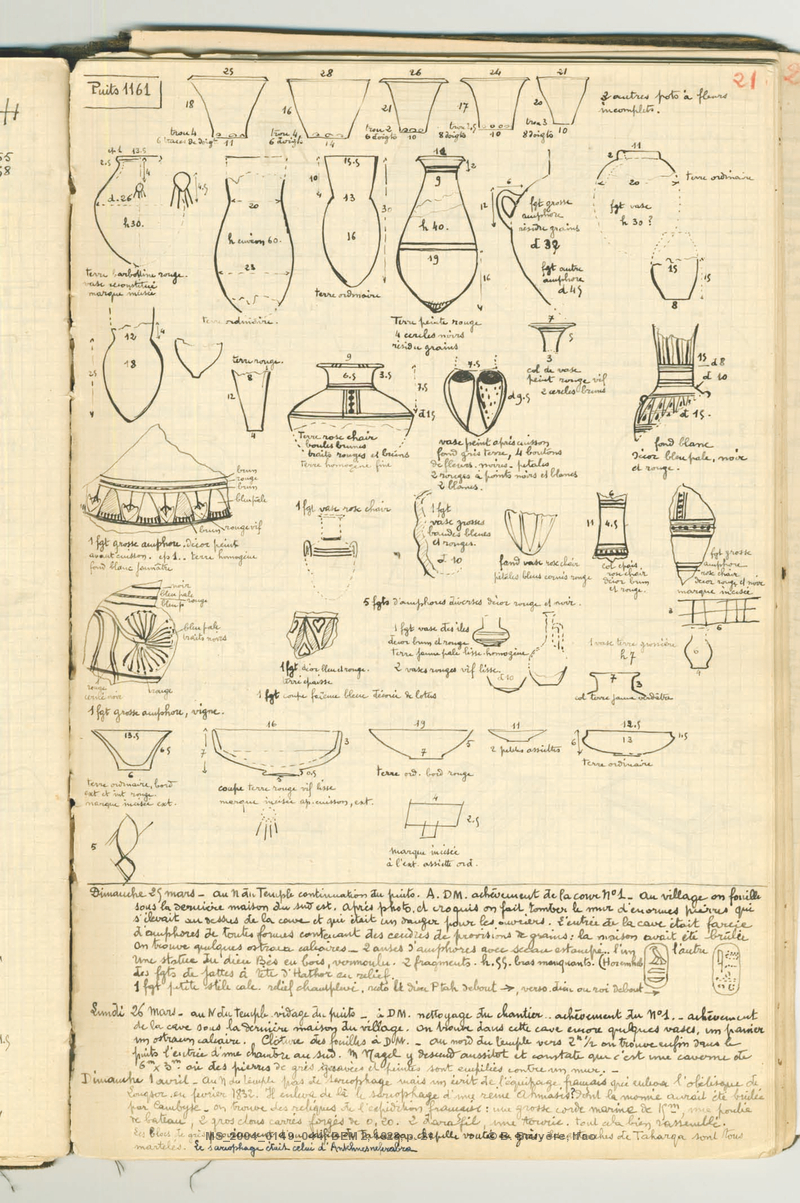 21
Puits 1161
25
28
26
24
21
18
16
21
17
20
trou 4
6 traces de doigt
11
trou 4,
6 doigts
14
trou 2
6 doigts
10
8 doigts
10
trou 3
8 doigts
10
2 autres pots à fleurs
incomplets.
12.5
2.5
4
d. 26
4.5
h 30.
terre barbotine rouge.
vase reconstitué
marque incisée
20
h environ 60.
28
terre ordinaire.
15.5
10
4
13
16
terre ordinaire
9
2
h 40.
19
16
4
Terre peinte rouge
4 cercles noirs
résidu grains
6
12
fgt grosse
amphore
résidu grains
d 32
fgt autre
amphore
d 45
11
2
20
terre ordinaire
fgt vase
h 30 ?
15
15
8
12
4
18
25
terre rouge.
8
12
4
9
6.5
3.5
7.5
d 15
Terre rose chair
boules brunes
traits rouges et bruns
terre homogène fine
7.5
d 9.5
vase peint après cuisson
fond gris terre, 4 boutons
de fleurs. noirs. pétales
2 rouges à points noirs et blancs
2 blancs.
7
5
3
col de vase
peint rouge vif
2 cercles bruns
15
d 8
d 10
d 15.
fond blanc
décor bleu pale, noir
et rouge.
brun
rouge
brun
bleu pale
brun
rouge vif
1 fgt grosse amphore. décor peint
avant cuisson. ep 1.. terre homogène
fond blanc jaunâtre
1 fgt vase rose chair
1 fgt
vase grosses
bandes bleues
et rouges.
d 10
fond vase rose chair
pétales bleus cernés rouge
6
11
4.5
col épais.
rose chair
décor brun
et rouge.
fgt grosse
amphore
rose chair
décor rouge et noir
marque incisée
6
noir
bleu pale
rouge
bleu p
bleu pale
traits noirs
rouge
cercle noir
rouge
1 fgt grosse amphore, vigne.
1 fgt décor bleu et rouge.
terre épaisse
5 fgts d'amphores diverses décor rouge et noir.
1 fgt vase des iles
décor brun et rouge
terre jaune pale lisse homogène
2 vases rouges vif lisse
1 fgt coupe faïence bleue décorée de lotus
1 vase terre grossière
h 7
6
6
7
3
col terre jaune verdâtre
13.5
6.5
6
terre ordinaire, bord
ext et int rouge
marque incisée ext.
16
7
3
5
0.5
coupe terre rouge vif lisse
marque incisée ap. cuisson, ext.
19
5
7
terre ord. bord rouge
11
2 petites assiettes
12.5
6
13
1.5
terre ordinaire
5
4
2.5
marque incisée
à l'ext. assiette ord.
Dimanche 25 mars - au N du Temple continuation du puits. A. DM. achèvement de la cour N°1 - au village on fouille
sous la dernière maison du sud est. après photo, et croquis on fait tomber le mur d'énormes pierres qui
s'élevait au dessus de la cave et qui était un danger pour les ouvriers. L'entrée de la cave était farcie
d'amphores de toutes formes contenant des cendres de provisions de grains: la maison avait été brûlée
on trouve quelques ostraca calcaires - 2 anses d'amphores avec sceau estampé, l'un l'autre
Une statue du dieu Bès en bois, vermoulu. 2 fragments. h. 55. bras manquants. (Horemheb
des fgts de pattes à tête d'Hathor en relief.
1 fgt petite stèle calc. relief champlevé, recto le dieu Ptah debout →, verso. dieu ou roi debout →
Lundi 26 mars - au N du Temple vidage du puits - à DM. nettoyage du chantier - achèvement du N°1. - achèvement
de la cave sous la dernière maison du village. On trouve dans cette cave encore quelques vases, un panier
un ostracon calcaire. Clôture des fouilles à D.M. - au nord du temple vers 2h 1/2 on trouve enfin dans le
puits l'entrée d'une chambre au sud. M Nagel y descend aussitôt et constate que c'est une caverne de
6m x 3m où des pierres de grès gravées et peintes sont empilées contre un mur. -
Dimanche 1 avril - au N du temple pas de sarcophage mais un écrit de l'équipage français qui enleva l'obélisque de
Louqsor en février 1832. Il enleva de là le sarcophage d'une reine Ahmasis? dont la momie aurait été brûlée
par Cambyse - on trouve des reliques de l'expédition française: une grosse corde marine de 15m, une poulie
de bateau, 2 gros clous carrés forgés de 0,20. 2 d'ara fil, une torche. tout cela bien rassemblé.
martelés. Le sarcophage était celui d'Ankhnesneferabra
MS_2004_0149_044 BEM 2 1161ap. 21 © B. Bruyère, Ifao